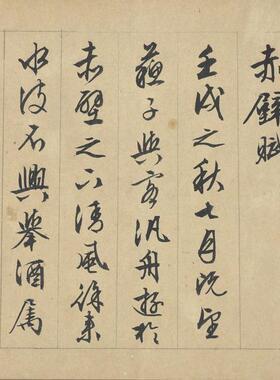 赤壁賦
壬戌之秋七月既望
蘇子與客汎舟遊於
赤壁之下清風徐来
水波不興舉酒屬